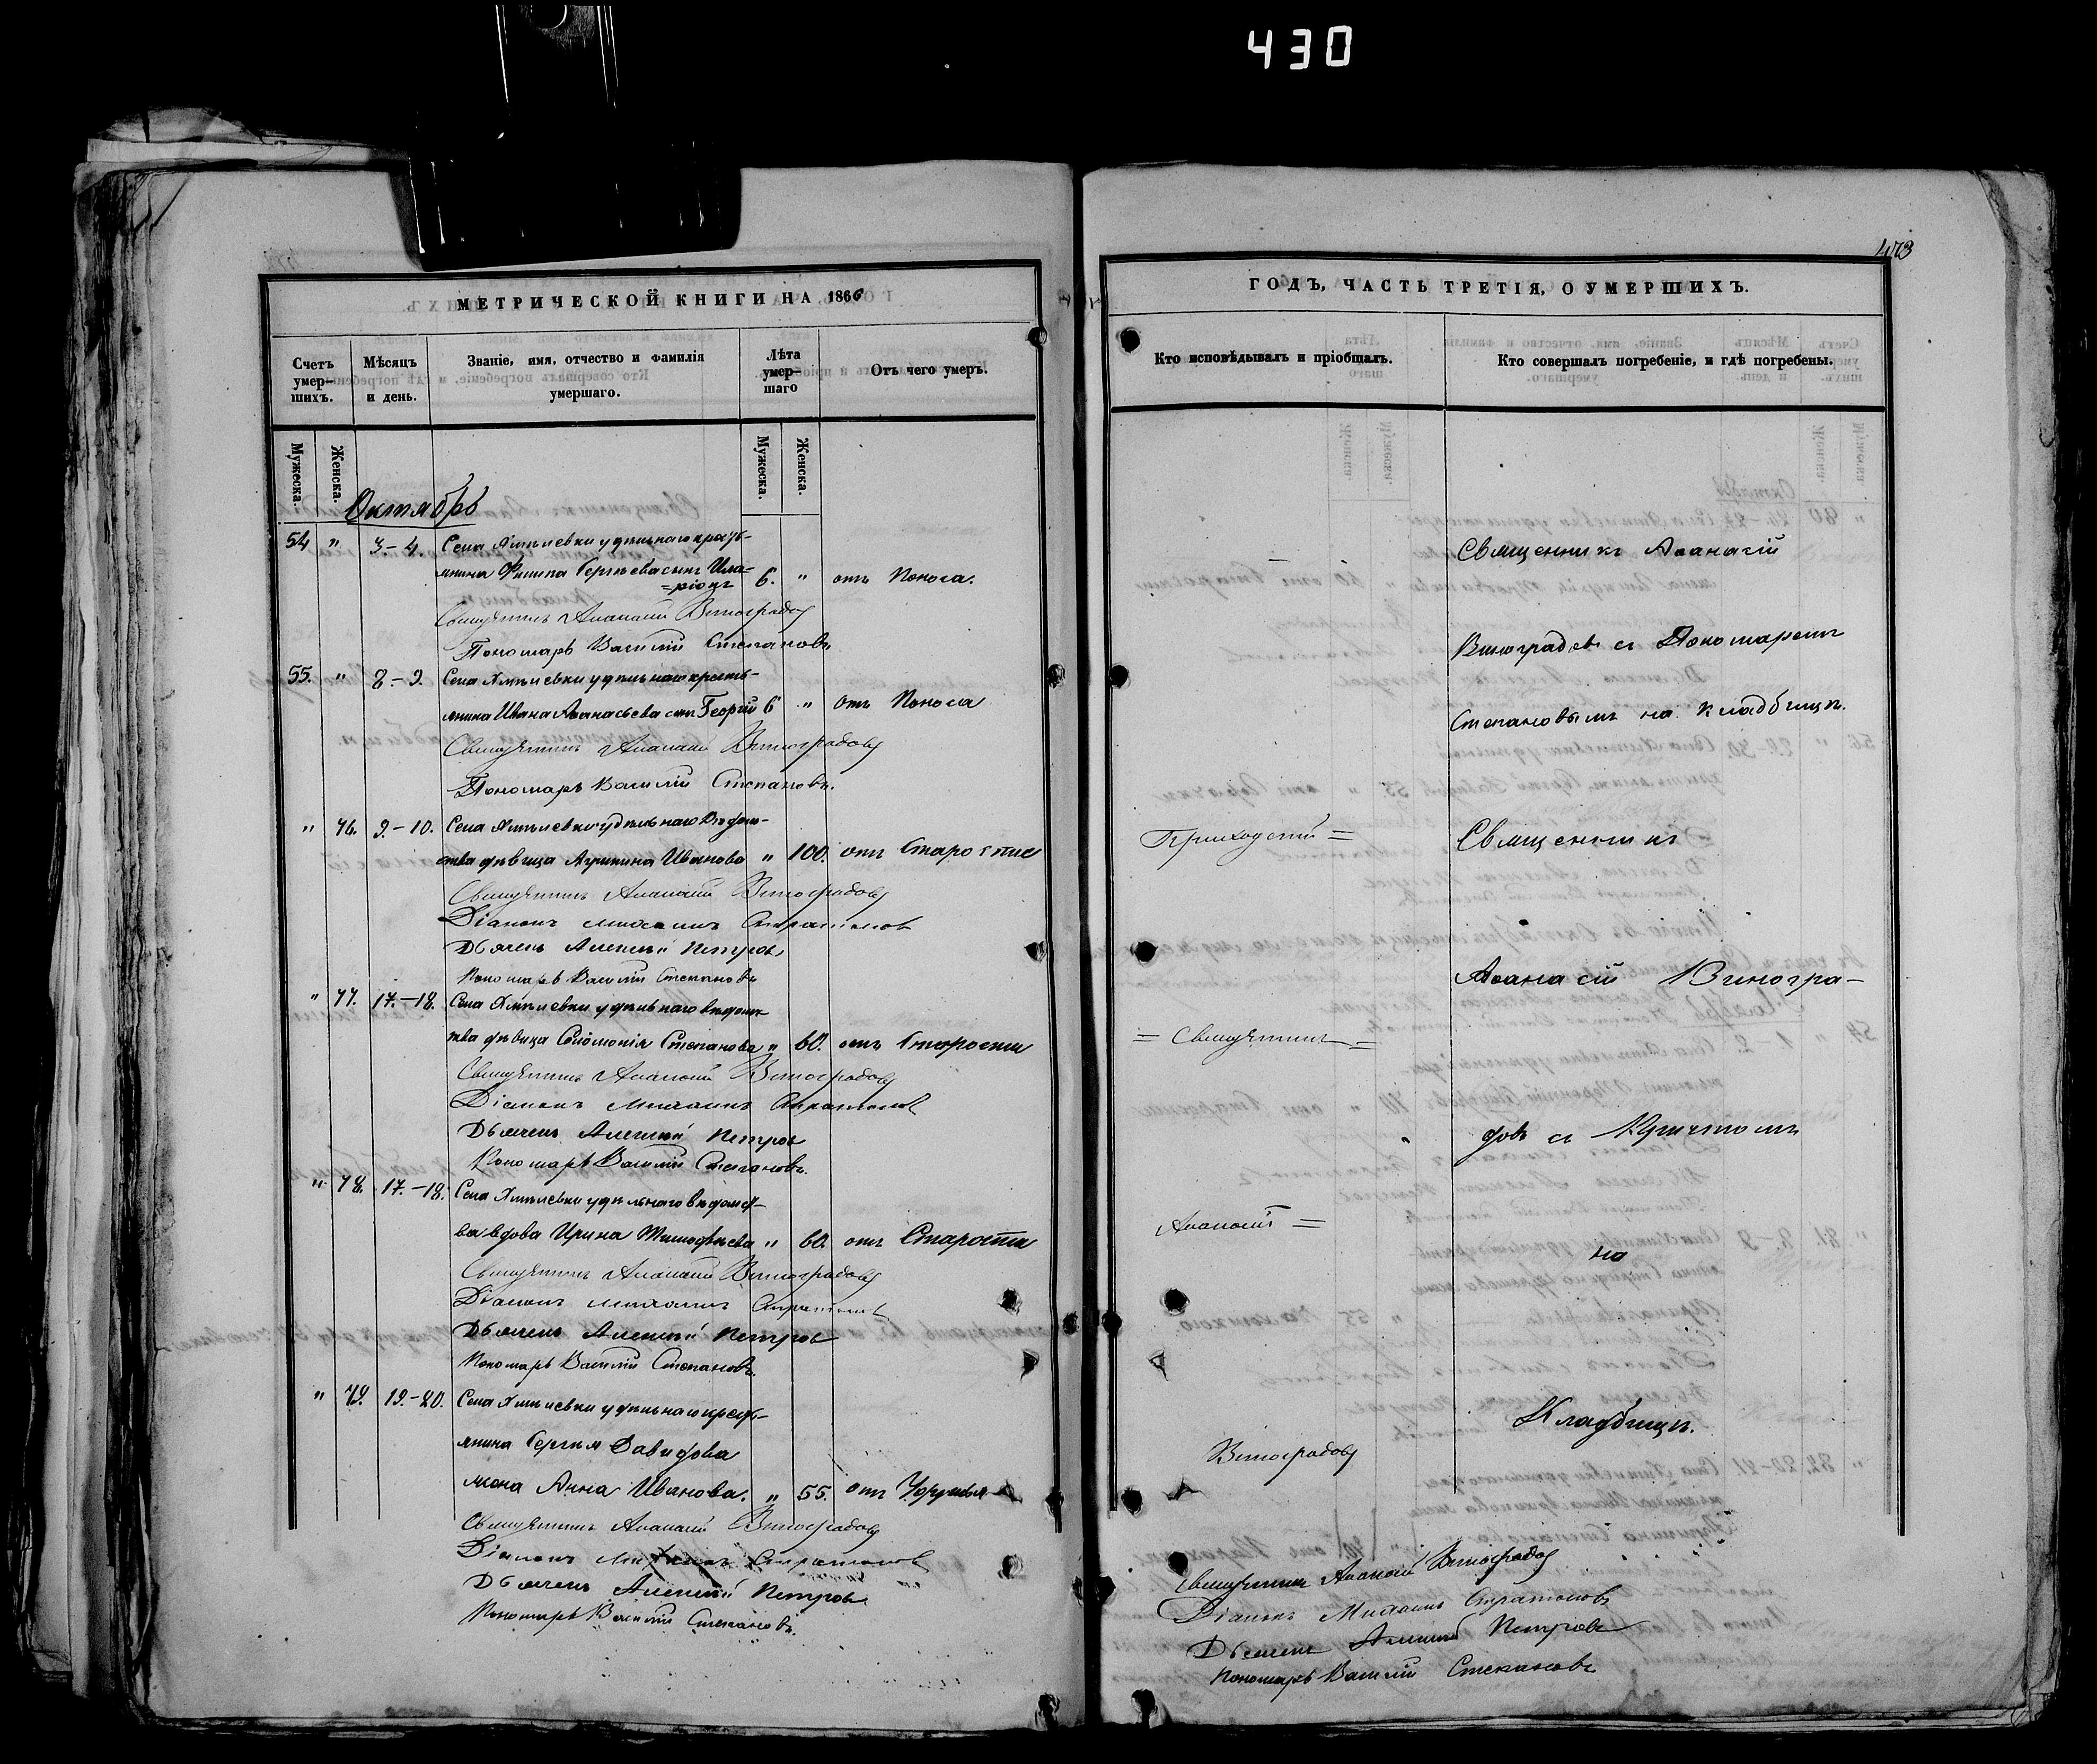 430
МЕТРИЧЕСКОЙ КНИГИ НА 1866
Счетъ умер-шихъ.
Мѣсяцъ и день.
Званіе, имя, отчество и фамилія умершаго.
Лѣта умер-шаго
Отъ чего умеръ.
Мужеска.
Женска.
Мужеска.
Женска.
Октябрь
54 " 3.-4. Села Хмѣлевки удѣльнаго кресть-
янина Филипа Сергѣева сынъ Ила-
=ріонъ 6. " отъ Поноса.
Священникъ Аѳанасій Виноградовъ
Пономарь Василій Степановъ
55. " 8.-9. Села Хмѣлевки удѣльнаго кресть-
янина Ивана Аѳанасьева сынъ Георгій 6 " отъ Поноса
Священникъ Аѳанасій Виноградовъ
Пономарь Василій Степановъ.
" 76. 9.-10. Села Хмѣлевки удѣльнаго вѣдом-
ства дѣвица Иванова " 100. отъ Старости
Священникъ Аѳанасій Виноградовъ
Діаконъ Михаилъ Стратоновъ
Дьячекъ Алексѣй Петровъ
Пономарь Василій Степановъ
" 77. 17.-18. Села Хмѣлевки удѣльнаго вѣдомс-
тва дѣвица Соломонія Степанова " 60. отъ Старости
Священникъ Аѳанасій Виноградовъ
Діаконъ Михаилъ Стратоновъ
Дьячекъ Алексѣй Петровъ
Пономарь Василій Степановъ.
" 78. 17.-18. Села Хмѣлевки удѣльнаго вѣдомст-
ва вдова Ирина Тимофѣева " 60. отъ Старости
Священникъ Аѳанасій Виноградовъ
Діаконъ Михаилъ Стратоновъ
Дьячекъ Алексѣй Петровъ
Пономарь Василій Степановъ.
" 79. 19.-20. Села Хмѣлевки удѣльнаго кресть-
янина Сергѣя Давидова
жена Анна Иванова. " 55. отъ
Священникъ Аѳанасій Виноградовъ
Діаконъ Михаилъ Стратоновъ
Дьячекъ Алексѣй Петровъ.
Пономарь Василій Степановъ.
473
ГОДЪ, ЧАСТЬ ТРЕТІЯ, О УМЕРШИХЪ.
Кто исповѣдывалъ и пріобщалъ.
Кто совершалъ погребеніе, и гдѣ погребены.
Священникъ Аѳанасій
Виноградовъ съ Пономаремъ
Степановымъ на кладбищѣ.
Приходскій =
Священникъ
Аѳанасій Виногра-
= Священникъ =
довъ съ Причтомъ
Аѳанасій =
на
Кладбищѣ.
Виноградовъ
Священникъ Аѳанасій Виноградовъ
Діаконъ Михаилъ Стратоновъ
Дьячекъ Алексѣй Петровъ
Пономарь Василій Степановъ